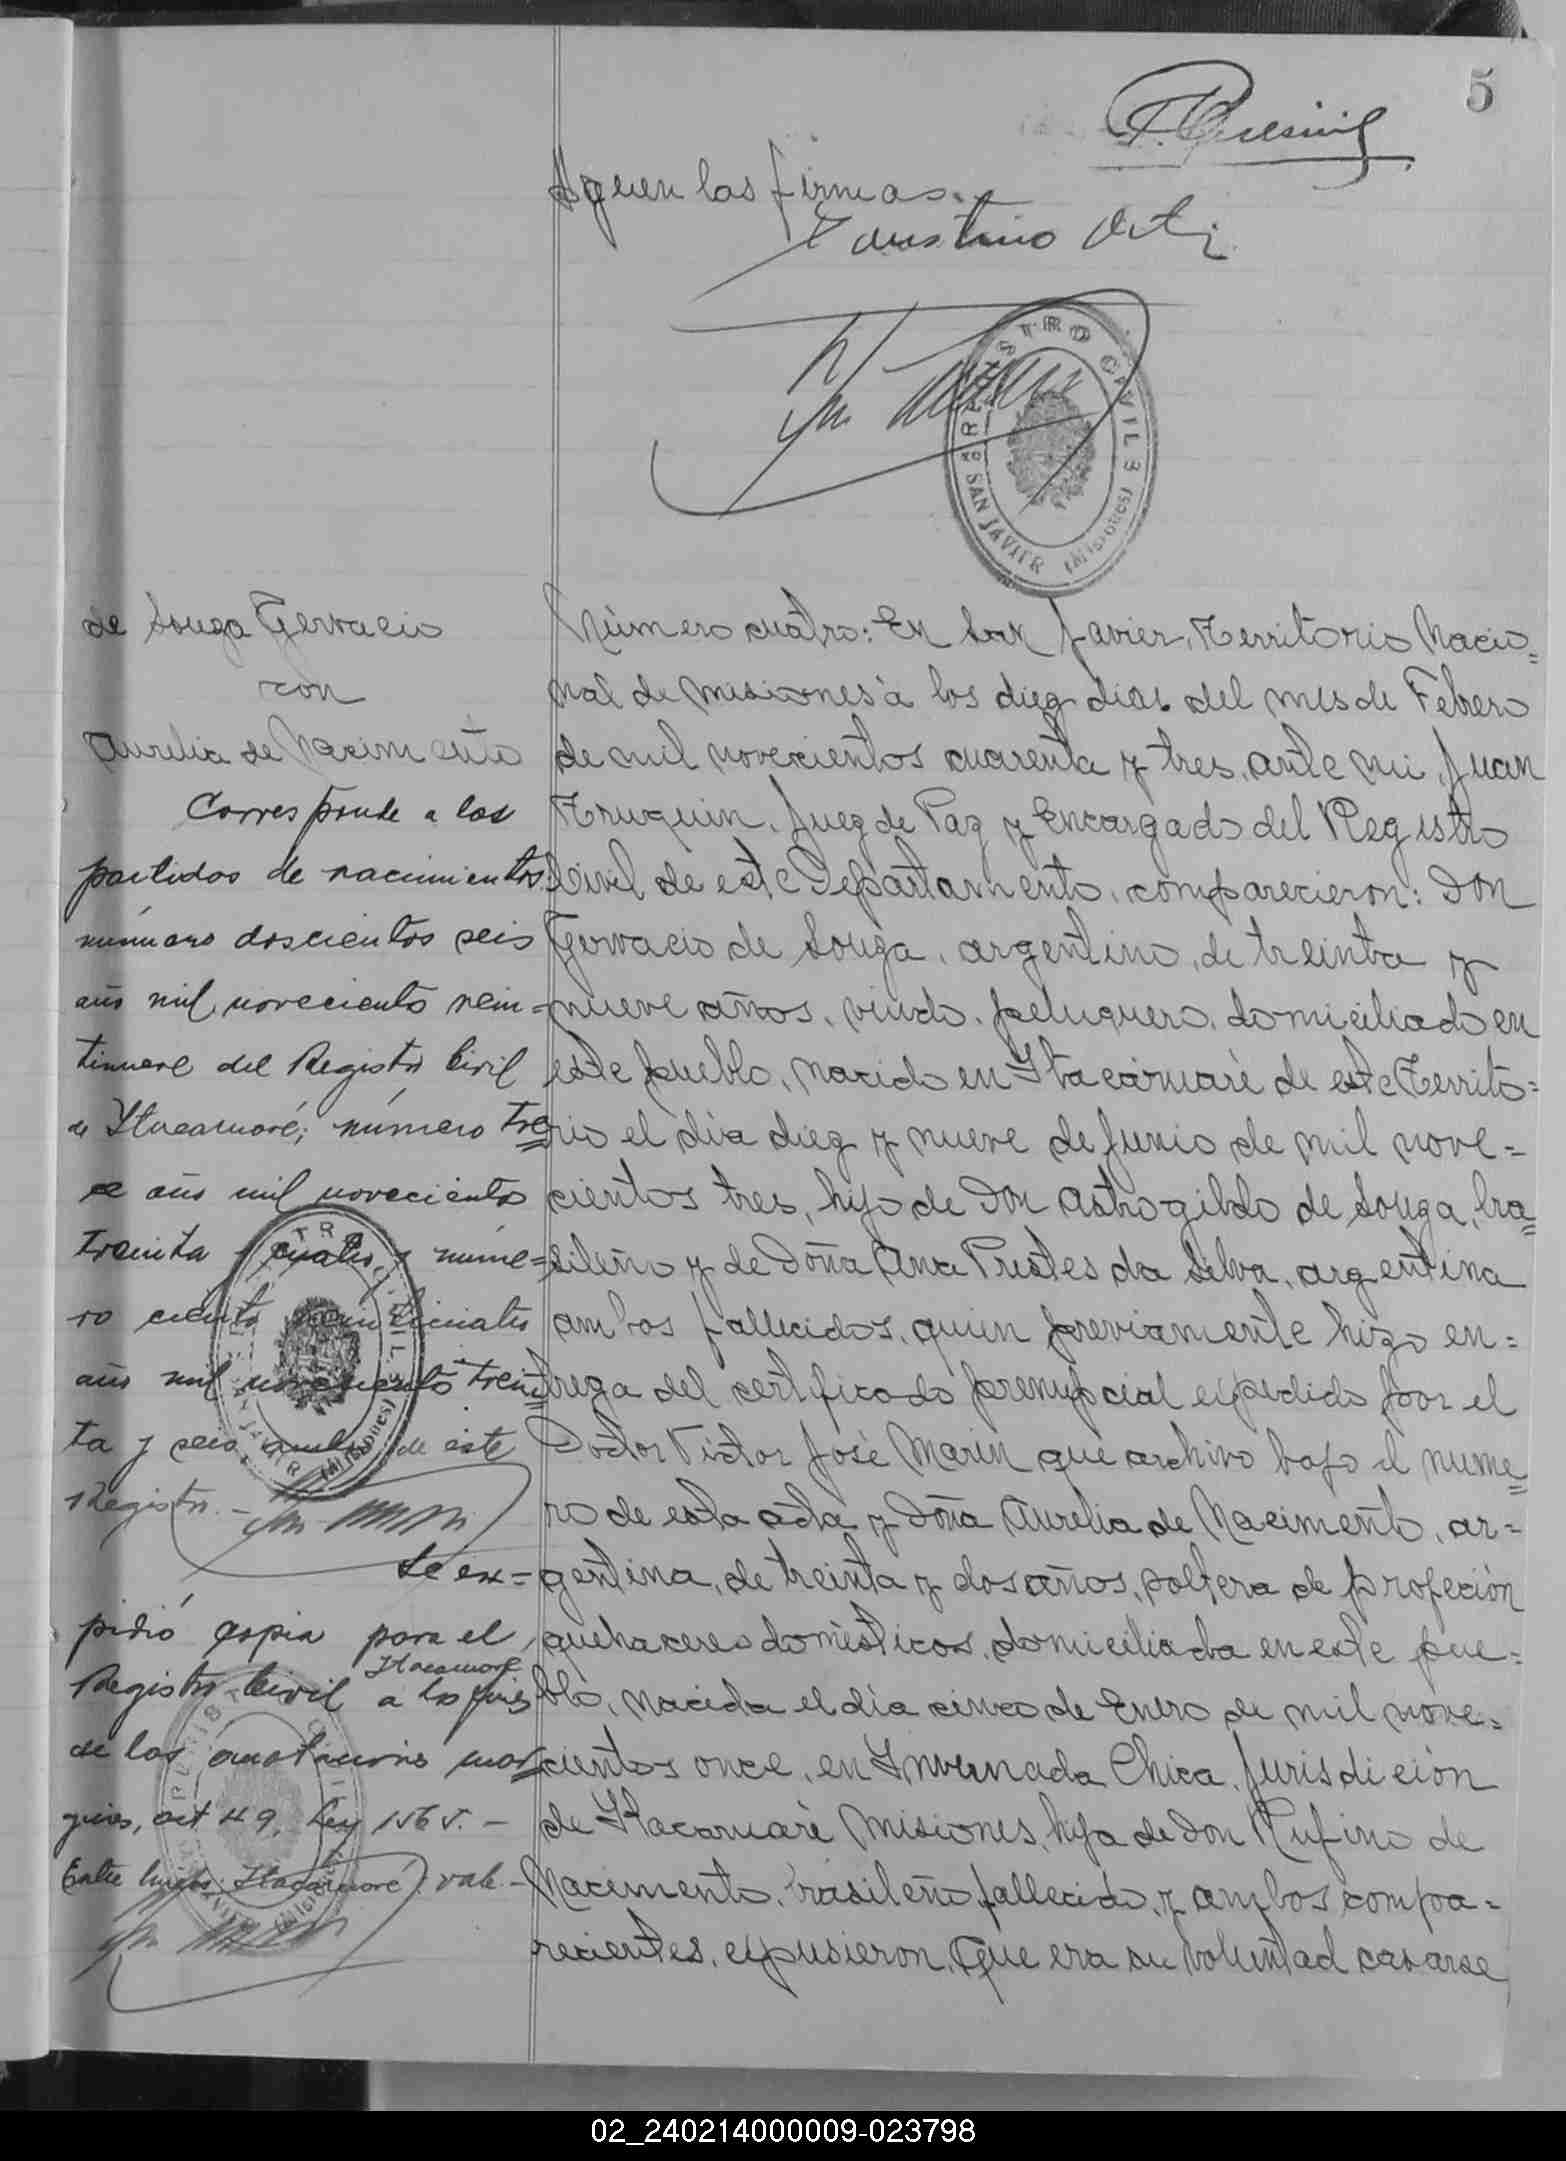 5
Siguen las firmas.
Faustino
REGISTRO CIVIL
SAN JAVIER (Misiones)
de Souza Gervacio
con
Aurelia de Nacimento
Corresponde a las
partidas de nacimientos:
número doscientos seis
año mil novecientos vein=
tinueve del Registro Civil
de Itacaruaré; número tre=
ce año mil novecientos
treinta y cuatro y núme=
ro ciento veinticuatro
año mil novecientos trein=
ta y seis ambas de éste
Registro.-
Se ex=
pidió copia para el
Itacaruaré
Registro Civil a los fines
de las anotaciones mar=
gines, art 49, Ley 1565.-
Entre líneas: Itacaruaré: vale-
Número cuatro: En San Javier, Territorio Nacio=
nal de Misiones á los diez dias del mes de Febrero
de mil novecientos cuarenta y tres, ante mi, Juan
Truquin, Juez de Paz y Encargado del Registro
Civil de este Departamento, comparecieron: Don
Gervacio de Souza, argentino, de treinta y
nueve años, viudo, peluquero, domiciliado en
este pueblo, nacido en Itacaruaré de este Territo=
rio el día diez y nueve de Junio de mil nove=
cientos tres, hijo de Don Astrogildo de Souza, bra=
sileño y de Doña Ana Prestes da Silva, argentina
ambos fallecidos, quien previamente hizo en=
trega del certificado prenupcial expedido por el
Doctor Victor José Marin que archivo bajo el nume=
ro de esta acta y Doña Aurelia de Nacimento, ar=
gentina, de treinta y dos años, soltera de profeción
quehaceres domésticos, domiciliada en este pue=
blo, nacida el día cinco de Enero de mil nove=
cientos once, en Invernada Chica, Jurisdición
de Itacaruaré Misiones, hija de Don Rufino de
Nacimento, brasileño fallecido, y ambos compa=
recientes, expusieron, Que era su voluntad casarse
02_240214000009-023798